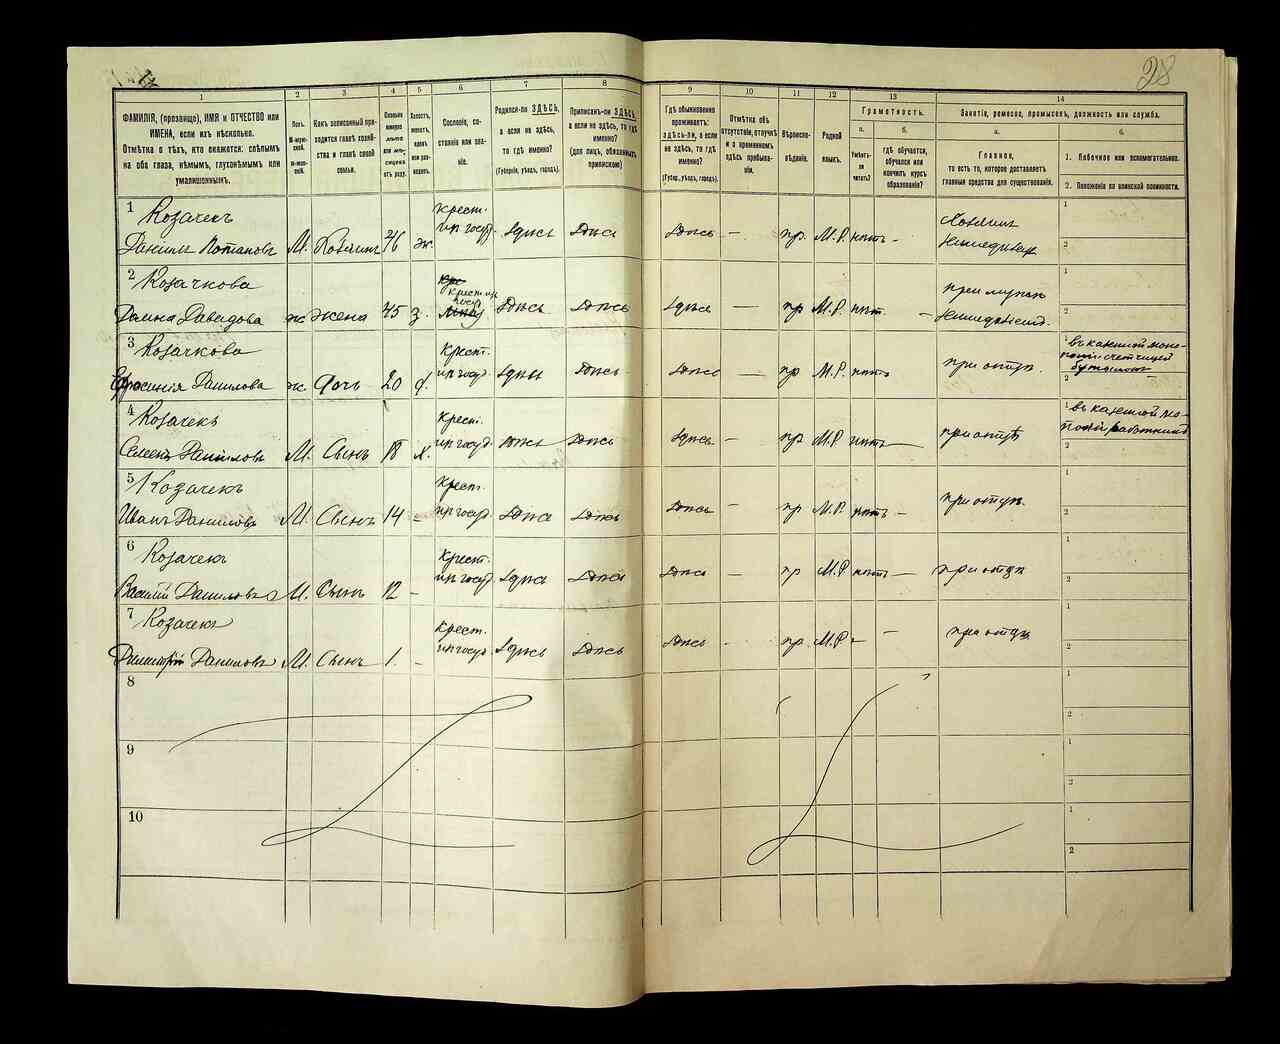 28
1
2
3
4
5
6
7
8
9
10
11
12
13
14
ФАМИЛІЯ, (прозвище), ИМЯ и ОТЧЕСТВО или
ИМЕНА, если ихъ нѣсколько.
Отмѣтка о тѣхъ, кто окажется: слѣпымъ
на оба глаза, нѣмымъ, глухонѣмымъ или
умалишоннымъ.
Полъ.
М-мужской.
Ж-женскій.
Какъ записанный приходится главѣ хозяйства и главѣ своей семьи.
Сословіе, состояніе или званіе.
Родился-ли ЗДѢСЬ,
а если не здѣсь,
то гдѣ именно?
(Губернія, уѣздъ, городъ).
Приписанъ-ли ЗДѢСЬ,
а если не здѣсь, то гдѣ
именно?
(для лицъ, обязанныхъ
припискою)
Гдѣ обыкновенно
проживаетъ:
здѣсь-ли, а если
не здѣсь, то гдѣ
именно?
(Губер., уѣздъ, городъ).
Отмѣтка объ
отсутствіи, отлучкѣ
и о временномъ
здѣсь пребываніи.
Вѣроисповѣданіе.
Родной
языкъ.
Грамотность.
а.
Умѣетъ-ли
читать?
б.
гдѣ обучается,
обучался или
кончилъ курсъ
образованія?
Занятіе, ремесло, промыселъ, должность или служба.
а.
Главное,
то есть то, которое доставляетъ
главныя средства для существованія.
б.
1. Побочное или вспомогательное.
2. Положеніе по воинской повинности.
1 Козачекъ
Данило Потаповъ М. Хозяинъ 46 ж. крест. из госуд. здѣсь здѣсь здѣсь — пр. М.Р. нѣтъ - Хозяинъ земледѣлец
2 Козачкова
Давидова ж жена 45 з. крест. из госуд. здѣсь здѣсь здѣсь — пр М.Р. нѣт. - при мужѣ
3 Козачкова
Ефросинія Данилова ж. Дочь 20 д. Крест. из госуд. здѣсь здѣсь здѣсь — пр М.Р. нѣтъ при отцѣ. въ казенной монополіи счетчицей
4 Козачекъ
Семенъ Даниловъ М. Сынъ 18 х. Крест. из госуд. здѣсь здѣсь здѣсь — пр. М.Р. нѣтъ — при отцѣ въ казенной
5 Козачекъ
Иванъ Даниловъ М. Сынъ 14 - Крест. из госуд. здѣсь здѣсь здѣсь — пр М.Р. нѣтъ — при отцѣ.
6 Козачекъ
Василій Даниловъ М. Сынъ 12 - Крест. из госуд. здѣсь здѣсь здѣсь — пр М.Р. нѣтъ — при отцѣ
7 Козачекъ
Димитрій Даниловъ М. Сынъ 1. - Крест. из госуд. здѣсь здѣсь здѣсь — пр. М.Р. - — при отцѣ
8
9
10